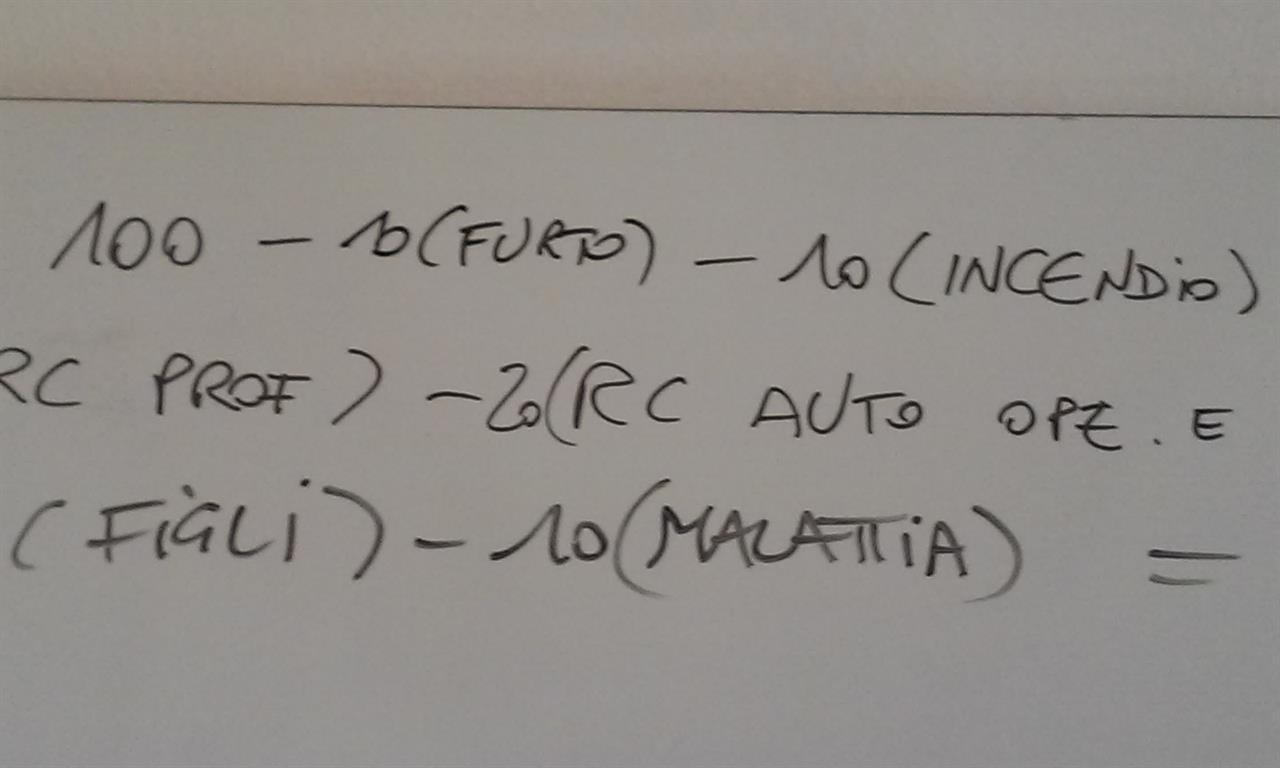 100 - 10 (FURTO) - 10 (INCENDIO)
RC PROF) - 20 (RC AUTO OPZ. E
(FIGLI) - 10 (MALATTIA) =